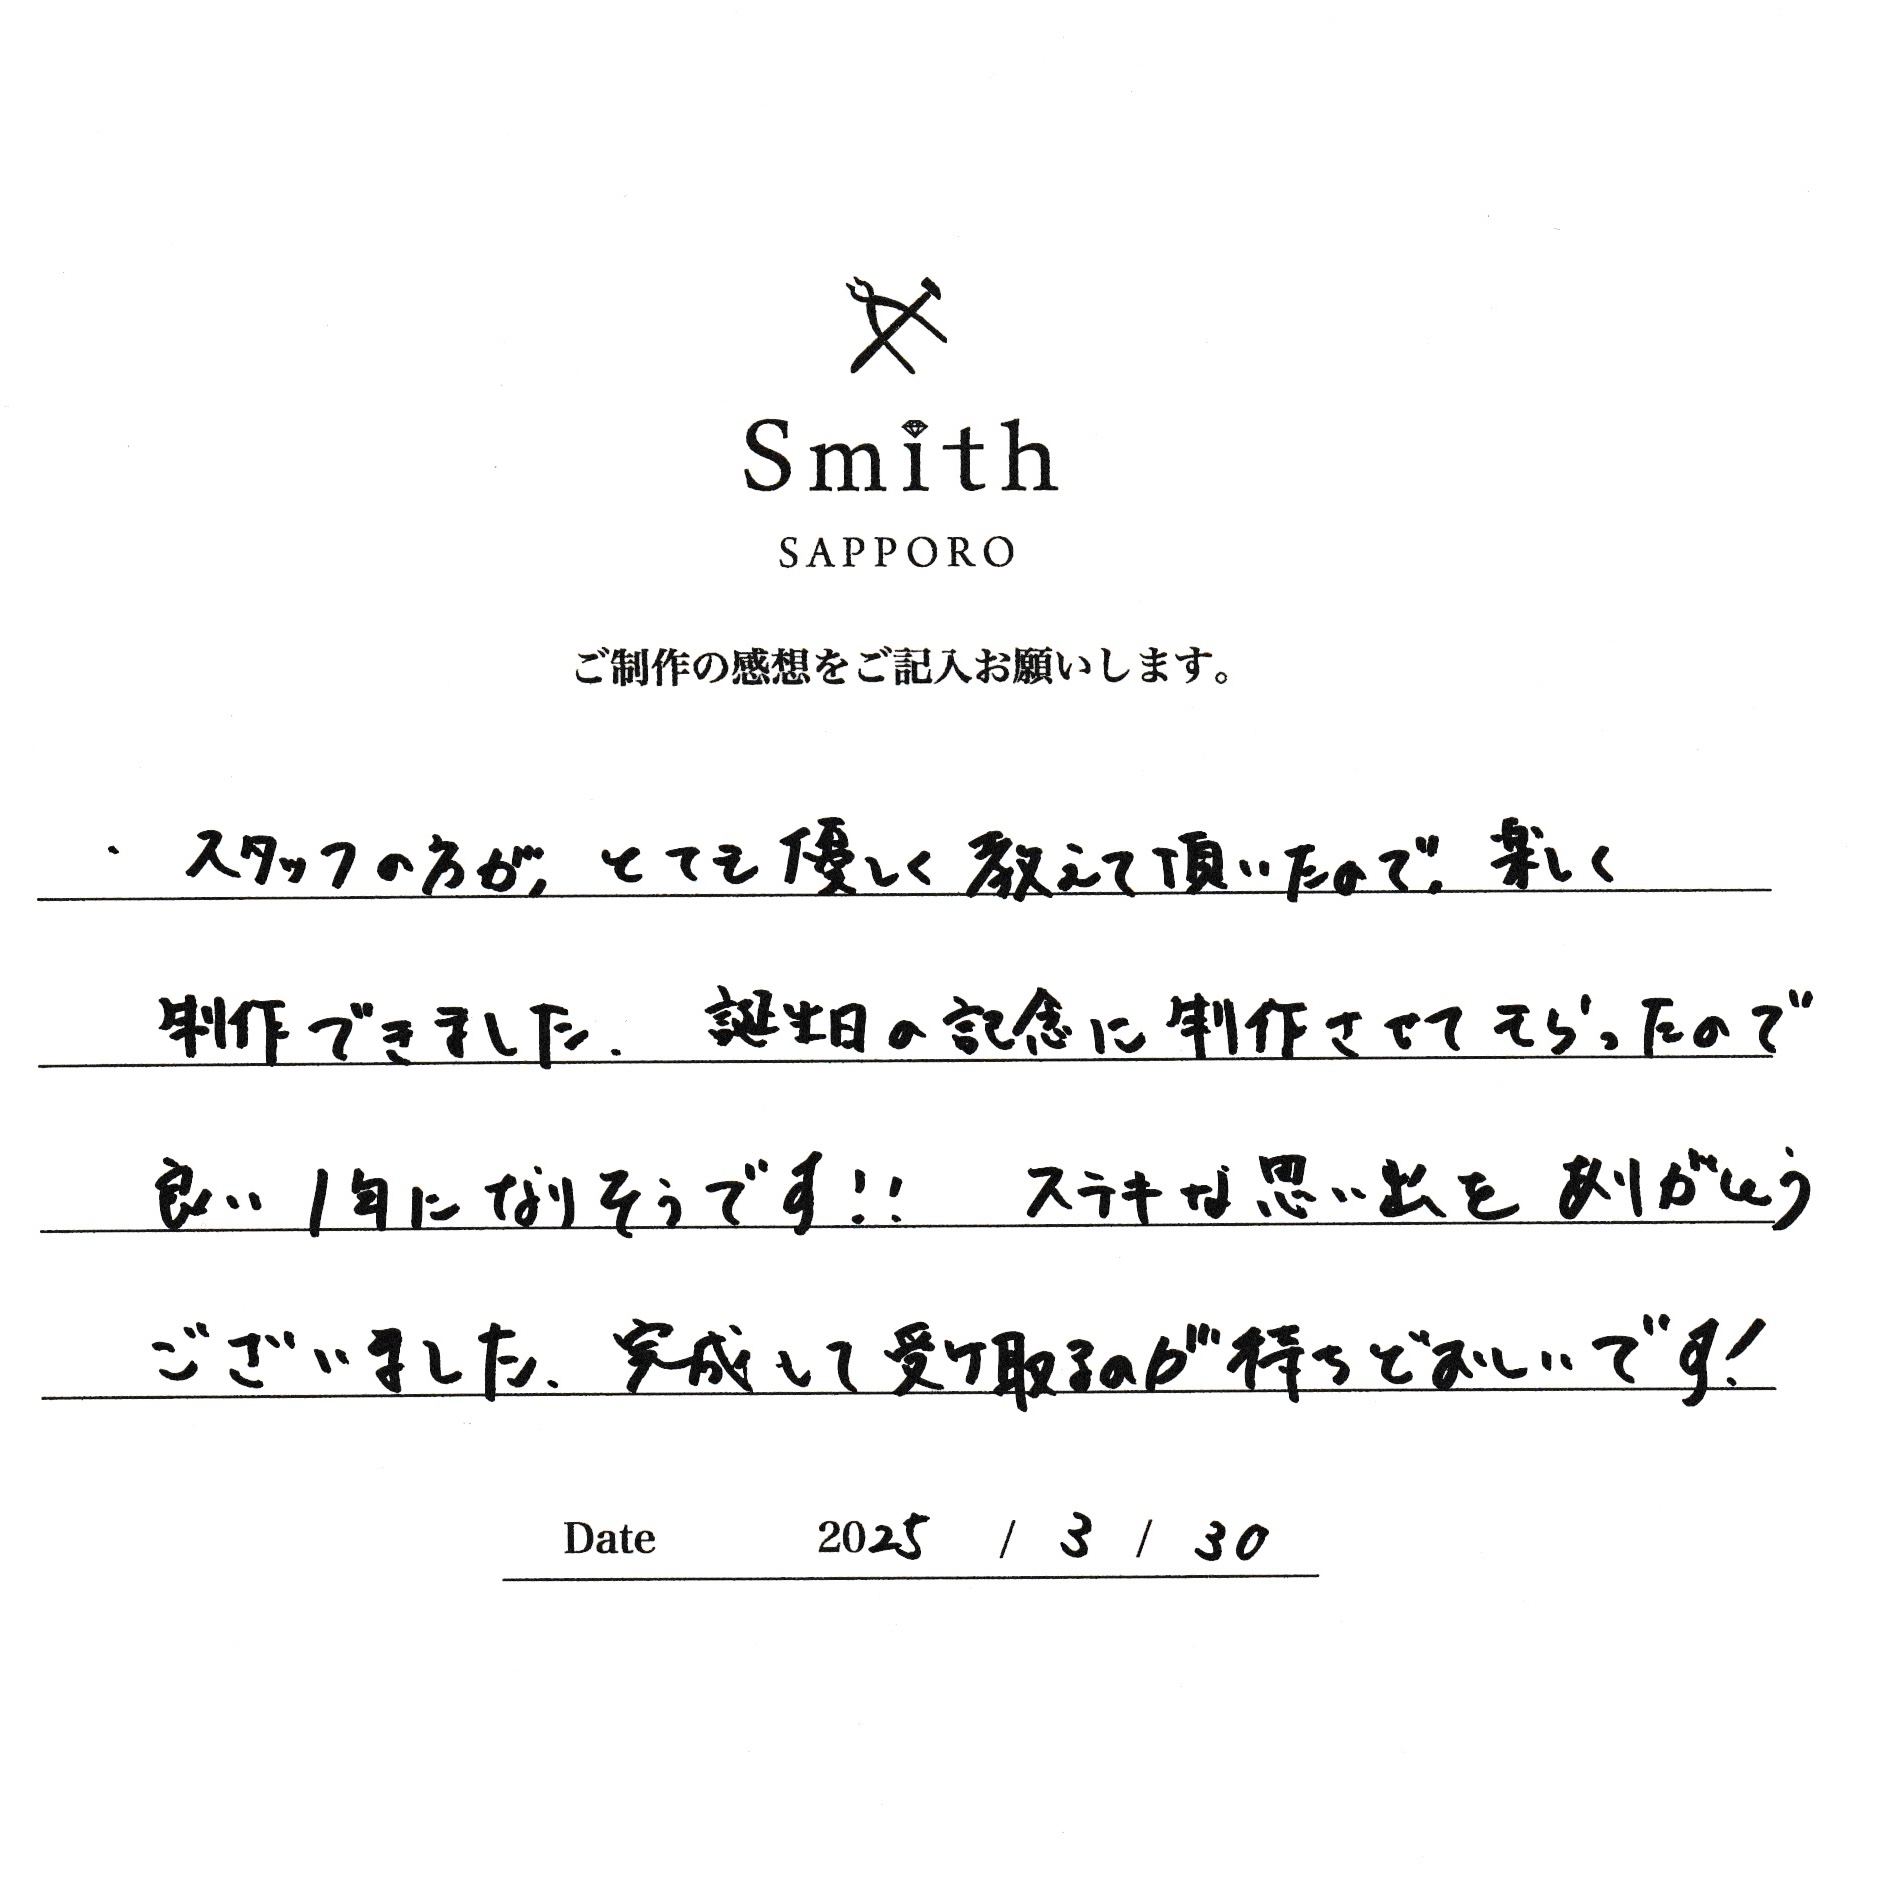 Smith
SAPPORO
ご制作の感想をご記入お願いします。
・スタッフの方が、とても優しく教えて頂いたので、楽しく
制作できました。誕生日の記念に制作させてもらったので
良い1年になりそうです!! ステキな思い出をありがとう
ございました。完成して受け取るのが待ちどおしいです!
Date 2025 / 3 / 30